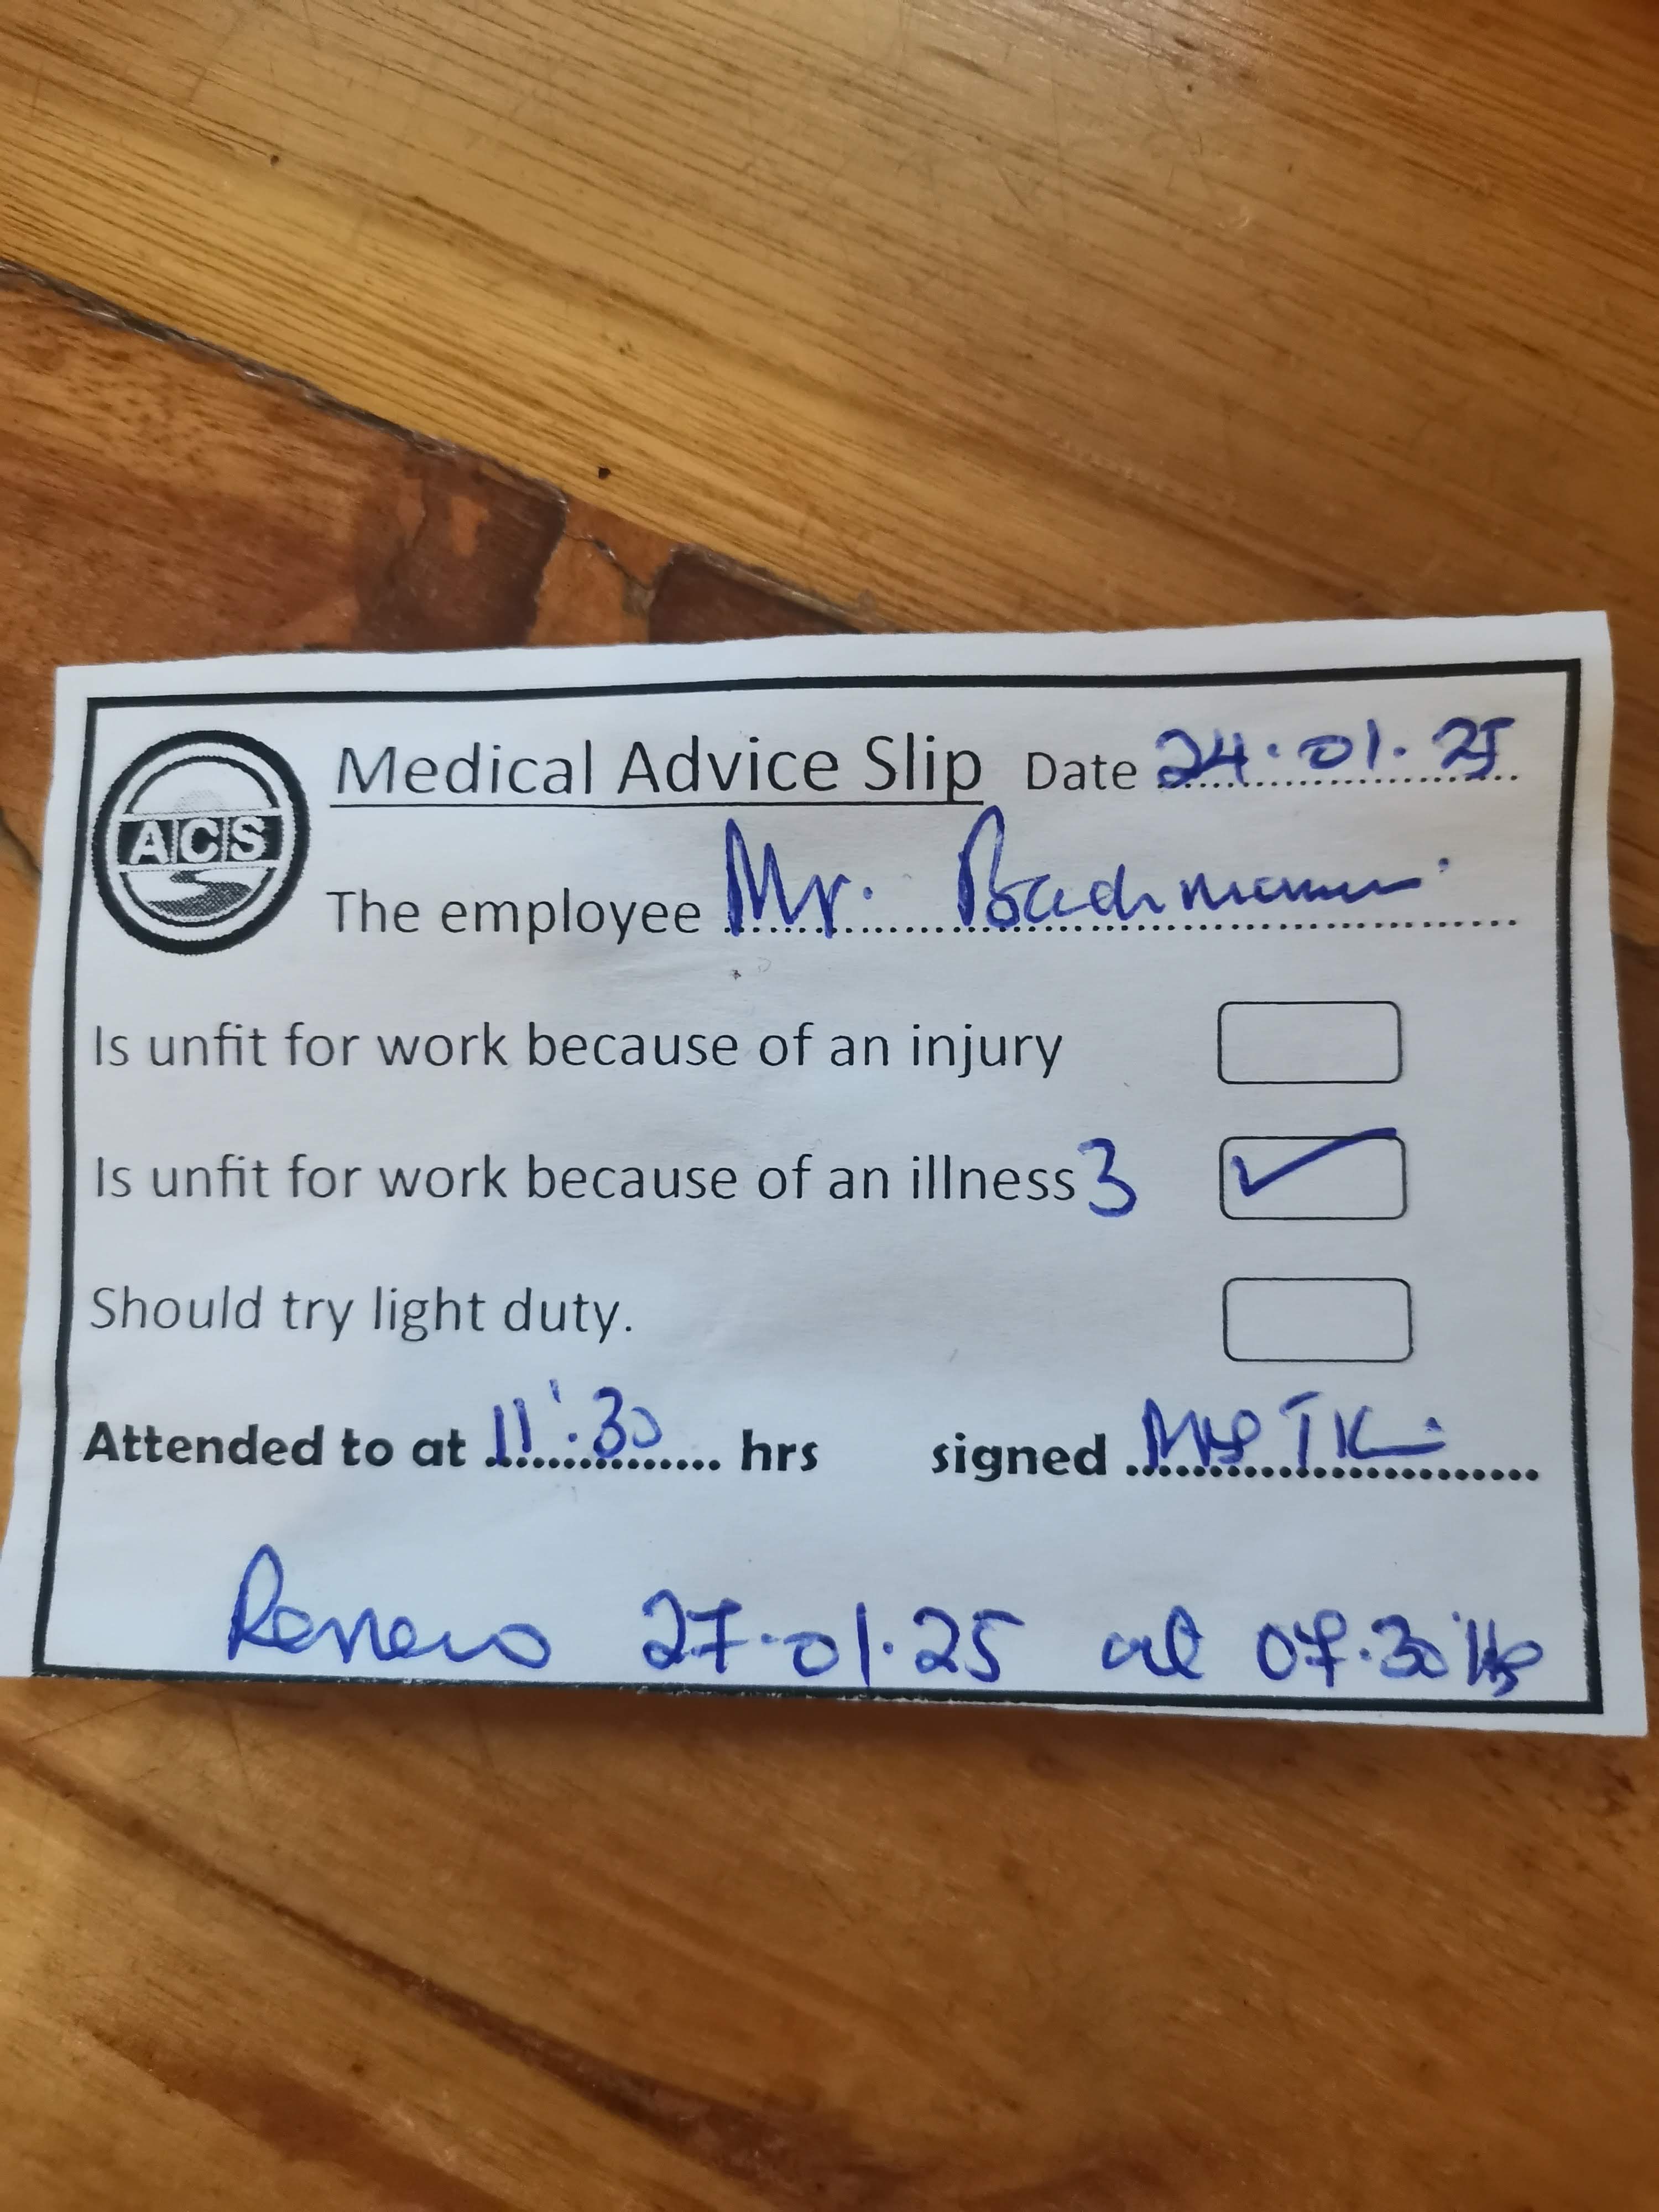 ACS
Medical Advice Slip Date 24.01.25
The employee Mr. Bachmann
Is unfit for work because of an injury
Is unfit for work because of an illness 3
Should try light duty.
Attended to at 11:30 hrs signed
27.01.25 at 07.30 Hrs